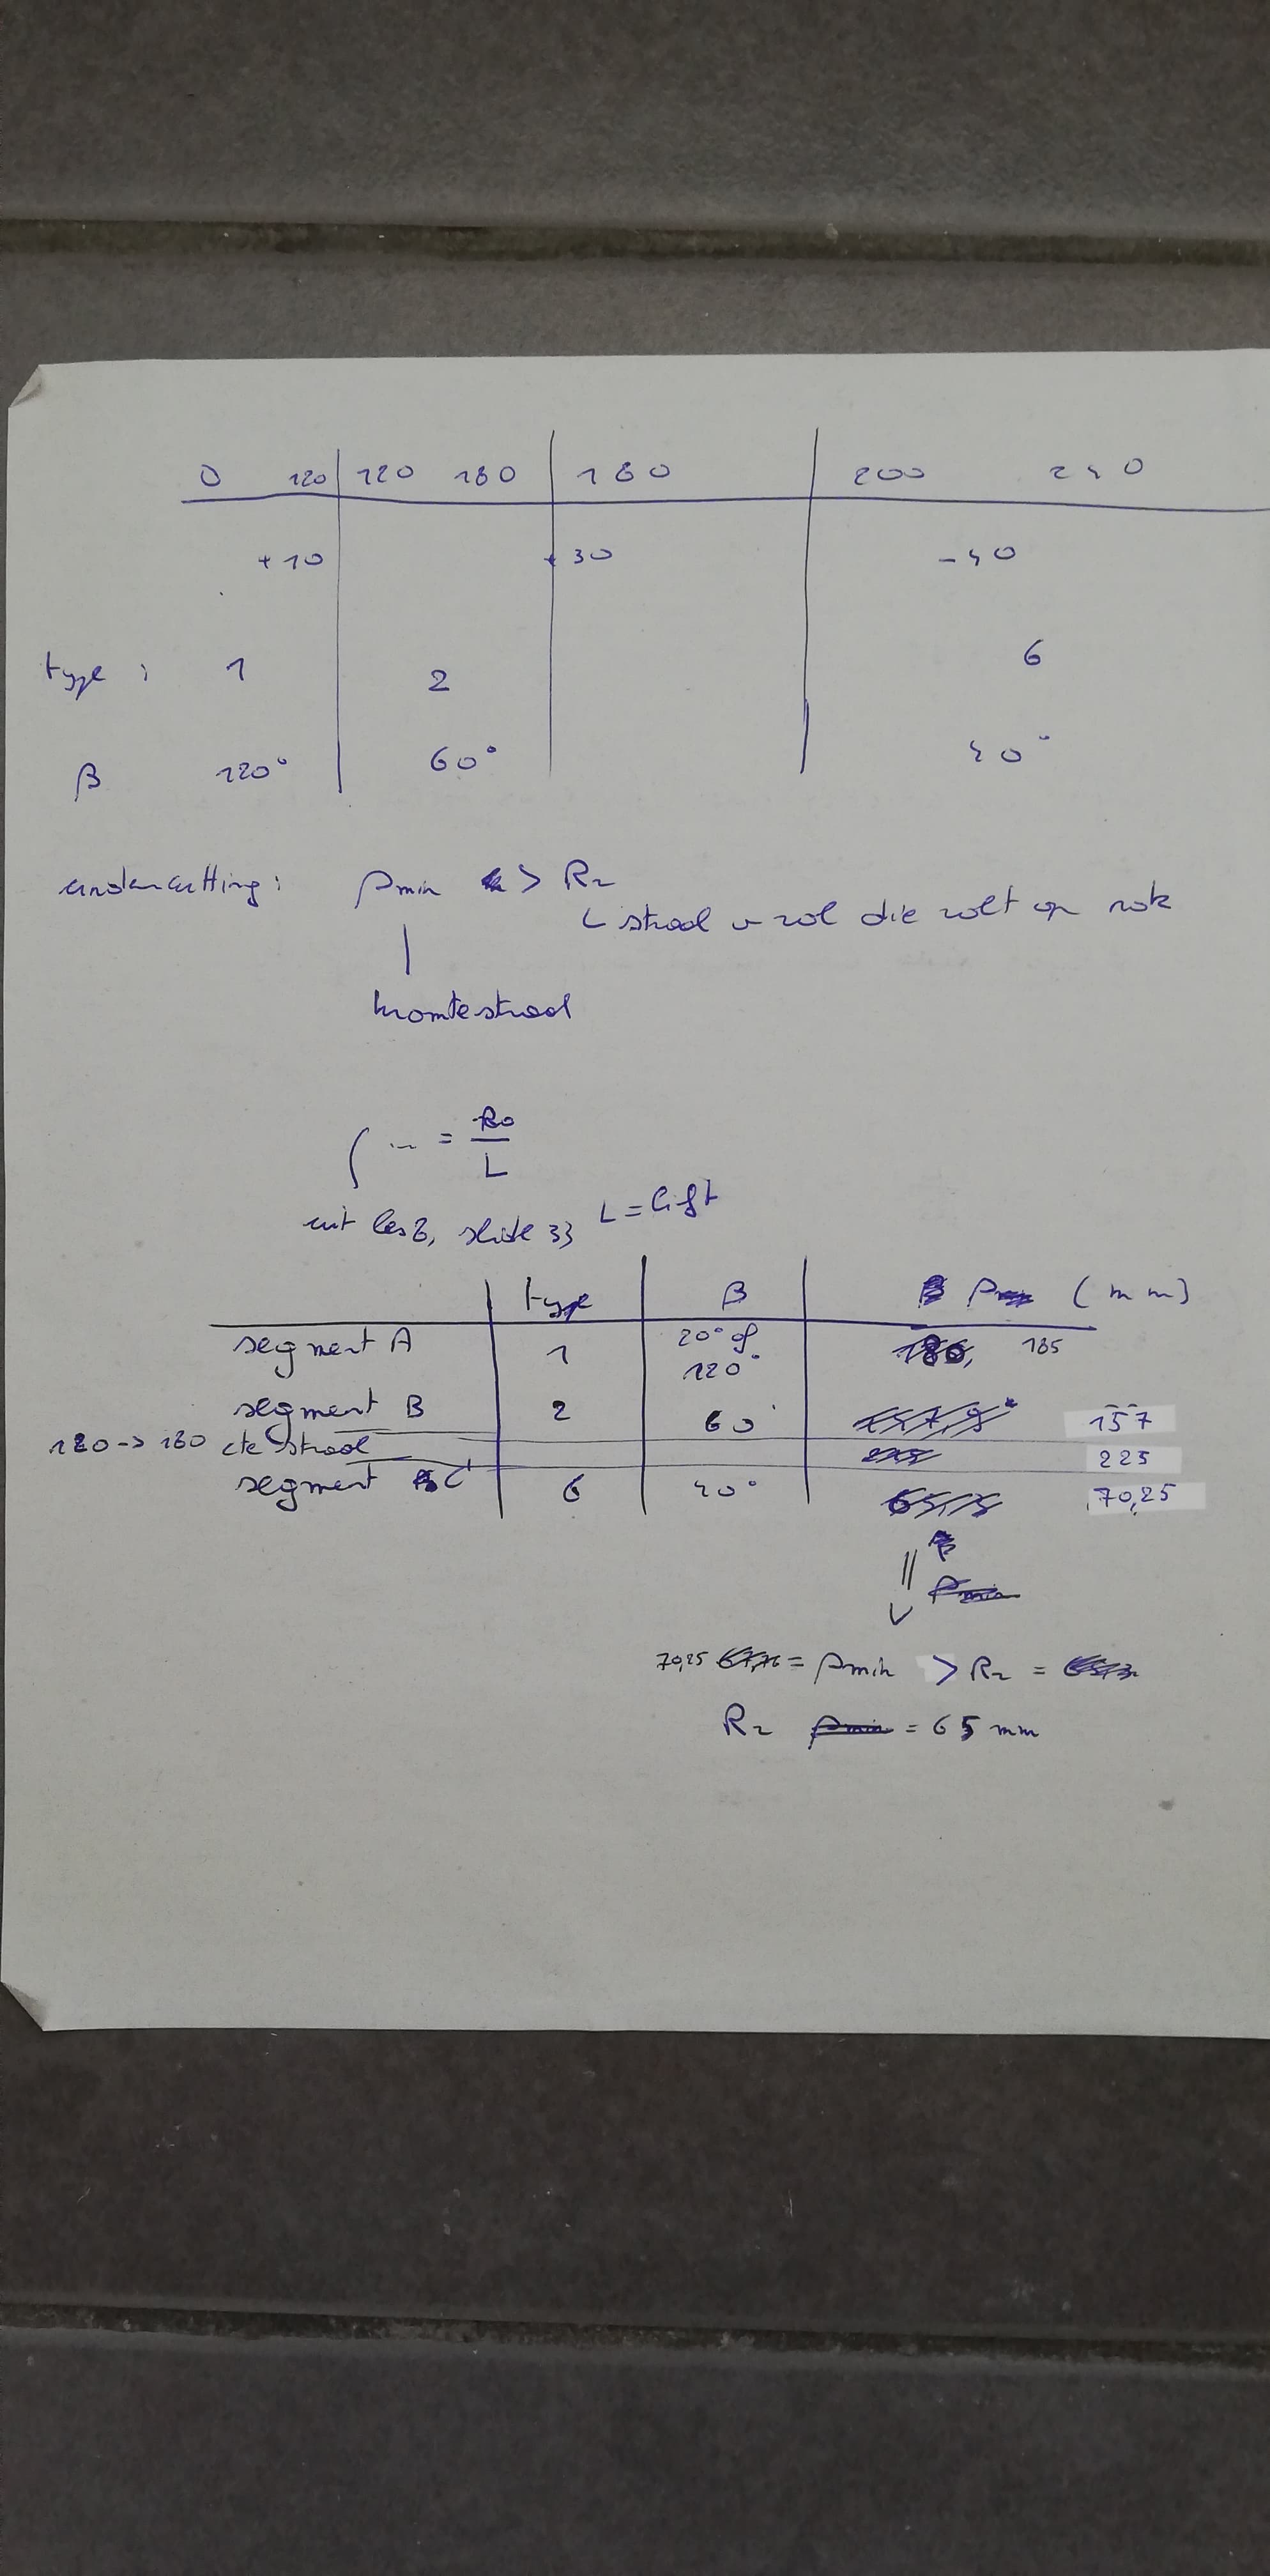 0 120 120 180 180 200 240
+10 +30 -40
type : 1 2 6
β 120° 60° 40°
undercutting: ρmin > Rr
straal v rol die rolt op nok
kromtestraal
= R0
L
uit les 8, slide 33 L = lift
type β ρ (mm)
segment A 1 20° of 120° 185
segment B 2 60° 157
180 -> 180 cte straal 225
segment C 6 40° 70,25
70,25 = ρmin > Rr =
Rr = 65 mm